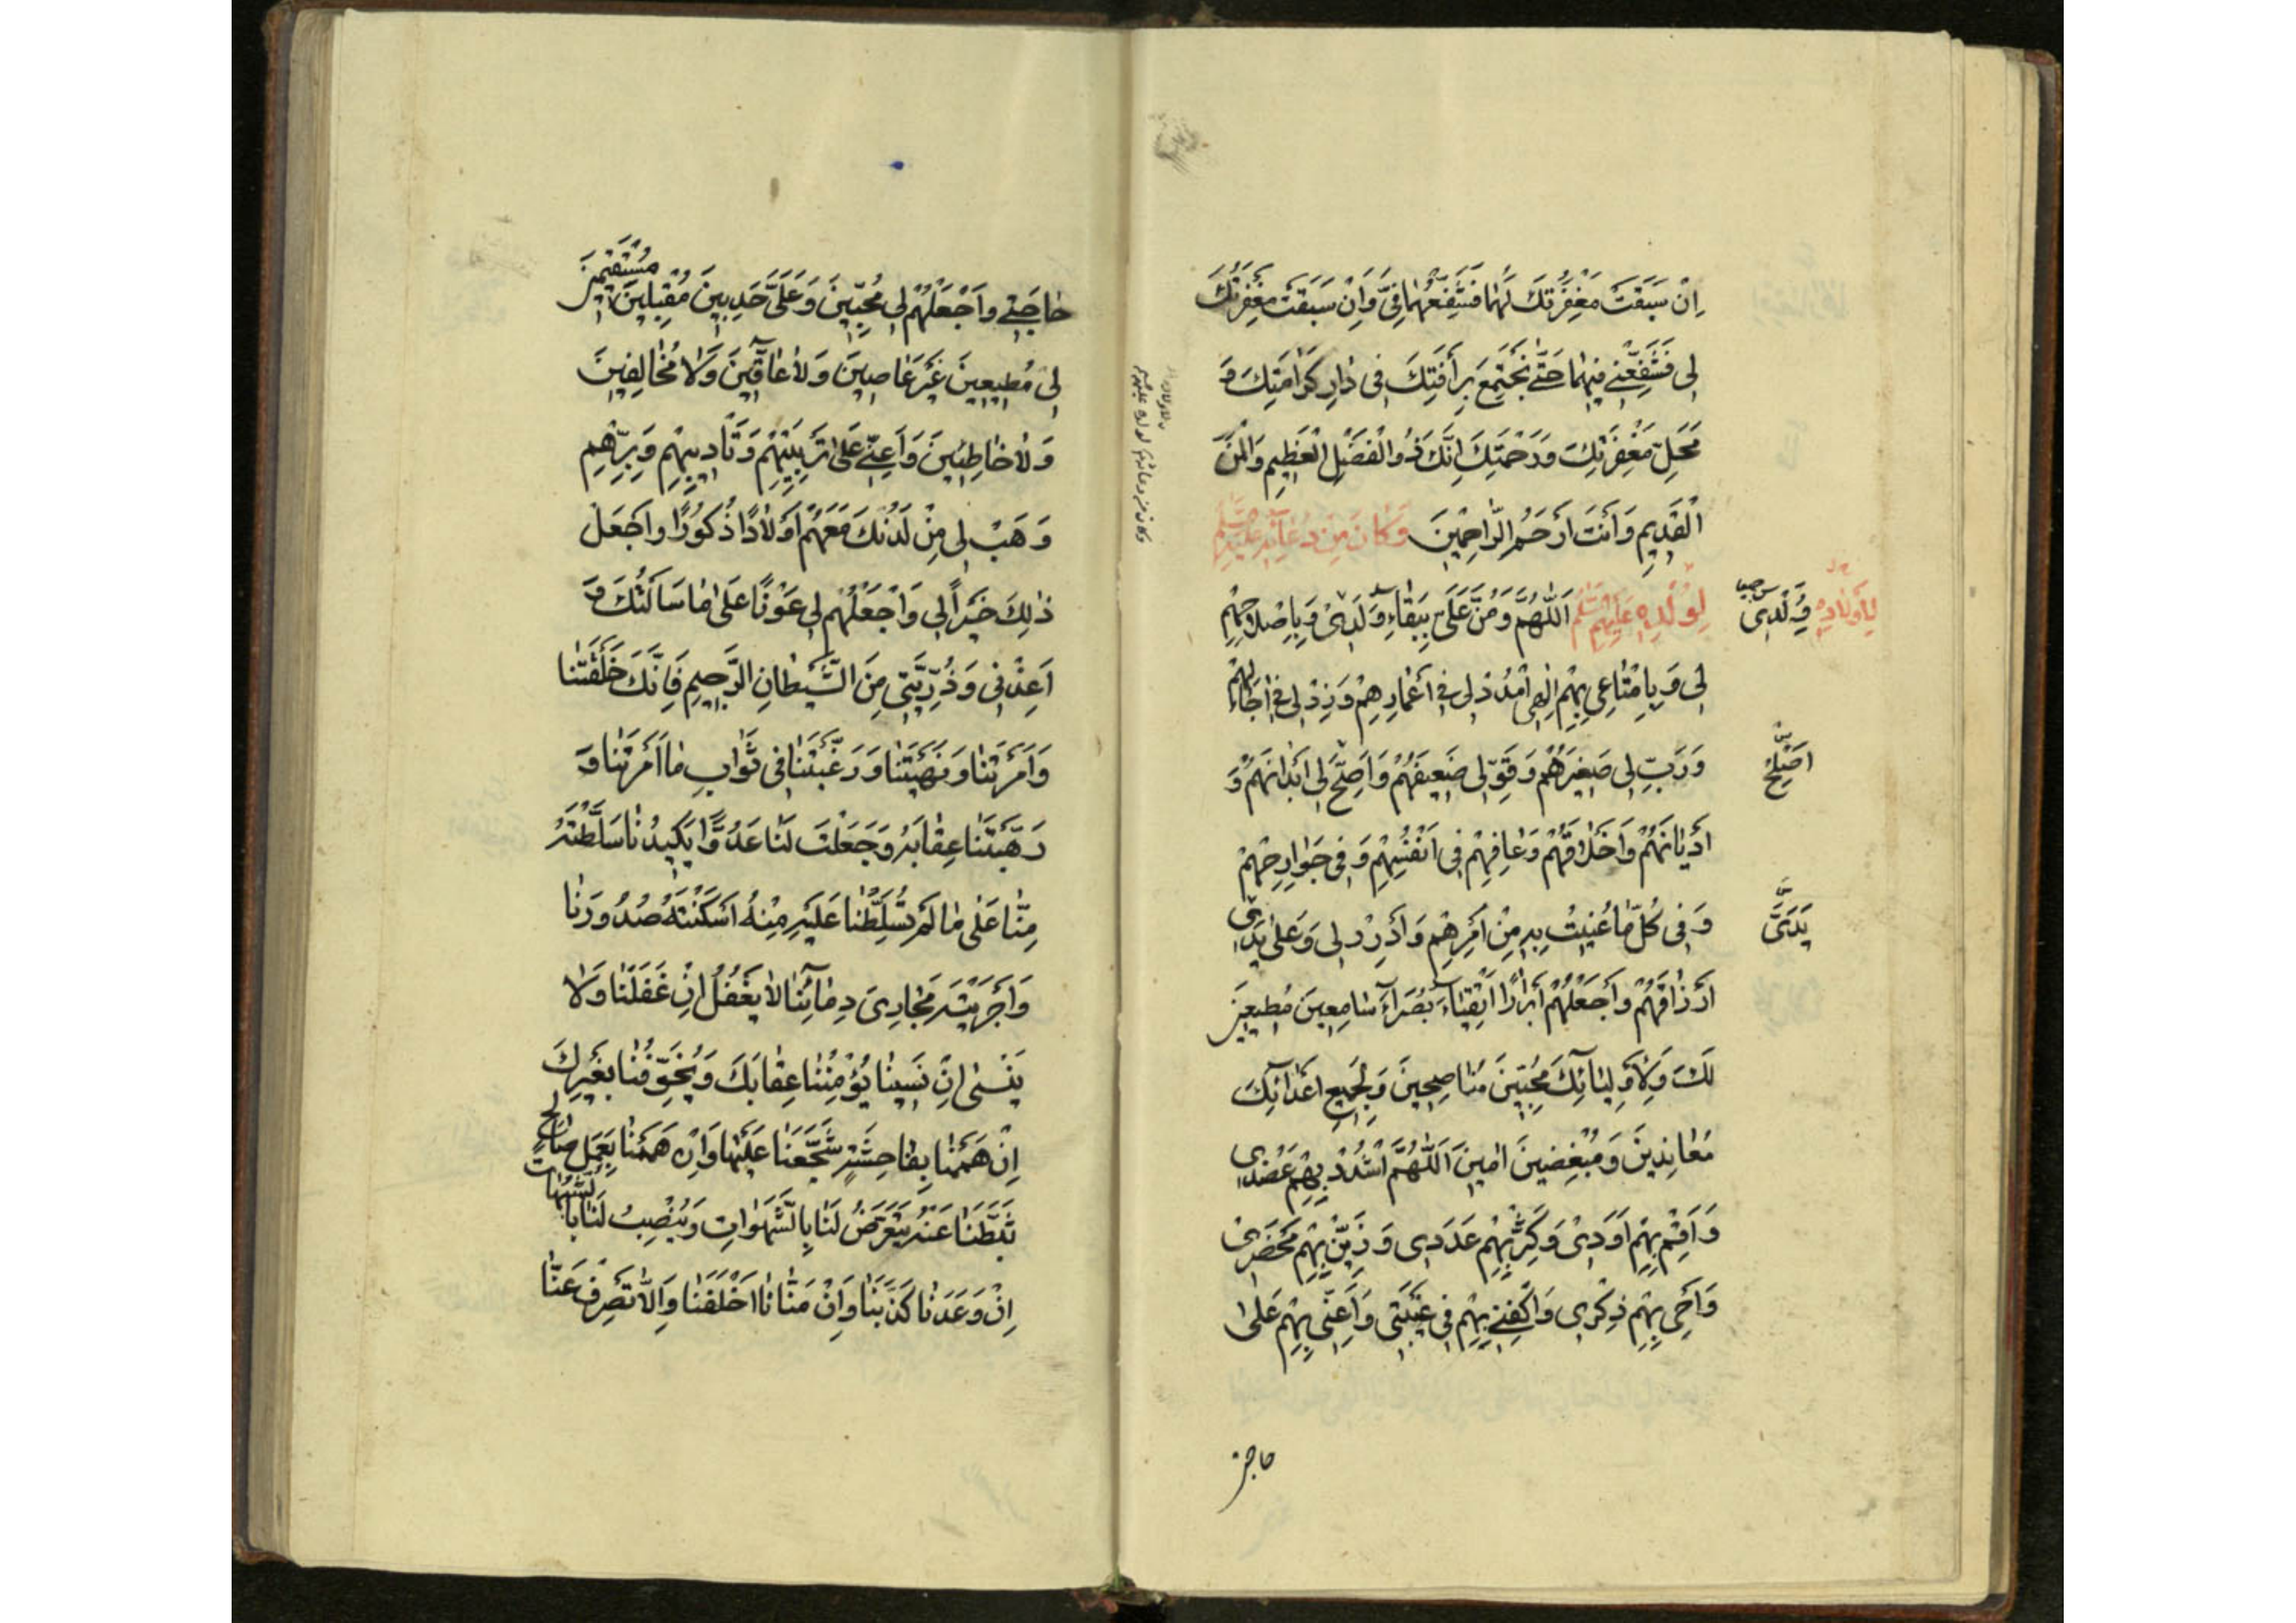 اِنْ سَبَقَتْ مَغْفِرَتُكَ لَهُمٰا فَشَفِّعْهُمٰا فِىَّ وَاِنْ سَبَقَتْ مَغْفِرَتُكَ
لى فَشَفِّعْنى فيهِمٰا حَتّٰى نَجْتَمِعَ بِرَأْفَتِكَ فى دٰارِ كَرٰامَتِكَ وَ
مَحَلِّ مَغْفِرَتِكَ وَرَحْمَتِكَ اِنَّكَ ذُو الْفَضْلِ الْعَظيمِ وَالْمَنِّ
الْقَديمِ وَاَنْتَ اَرْحَمُ الرّٰاحِمينَ وَكٰانَ مِنْ دُعٰآئِهِ عَلَيْهِ السَّلٰم
لِوُلْدِهِ عَلَيْهِمُ السَّلٰم اَللّٰهُمَّ وَمُنَّ عَلَىَّ بِبَقٰاءِ وَلَدى وَبِاِصْلاحِهِمْ
لى وَبِاِمْتٰاعى بِهِمْ اِلٰهى امْدُدْ لى فى اَعْمٰارِهِمْ وَزِدْ لى فى اٰجٰالِهِمْ
وَرَبِّ لى صَغيرَهُمْ وَقَوِّ لى ضَعيفَهُمْ وَاَصِحَّ لى اَبْدٰانَهُمْ وَ
اَدْيٰانَهُمْ وَاَخْلٰاقَهُمْ وَعٰافِهِمْ فى اَنْفُسِهِمْ وَفى جَوٰارِحِهِمْ
وَفى كُلِّ مٰا عُنيتُ بِهِ مِنْ اَمْرِهِمْ وَاَدْرِرْ لى وَعَلٰى يَدى
اَرْزٰاقَهُمْ وَاجْعَلْهُمْ اَبْرٰارًا اَتْقِيٰاءَ بُصَرٰآءَ سٰامِعينَ مُطيعينَ
لَكَ وَلِاَوْلِيٰآئِكَ مُحِبّينَ مُنٰاصِحينَ وَلِجَميعِ اَعْدٰآئِكَ
مُعٰانِدينَ وَمُبْغِضينَ اٰمينَ اَللّٰهُمَّ اشْدُدْ بِهِمْ عَضُدى
وَاَقِمْ بِهِمْ اَوَدى وَكَثِّرْ بِهِمْ عَدَدى وَزَيِّنْ بِهِمْ مَحْضَرى
وَاَحْىِ بِهِمْ ذِكْرى وَاكْفِنى بِهِمْ فى غَيْبَتى وَاَعِنّى بِهِمْ عَلٰى
حاجتى
لِاَوْلٰادِهِ
وُلْدى
اَصْلِحْ
يَدَىَّ
وكان من دعائه لولده عليهم
حٰاجَتى وَاجْعَلْهُمْ لى مُحِبّينَ وَعَلَىَّ حَدِبينَ مُقْبِلينَ مُسْتَقيمينَ
لى مُطيعينَ غَيْرَ عٰاصينَ وَلٰا عٰآقّينَ وَلٰا مُخٰالِفينَ
وَلٰا خٰاطِئينَ وَاَعِنّى عَلٰى تَرْبِيَتِهِمْ وَتَأْديبِهِمْ وَبِرِّهِمْ
وَهَبْ لى مِنْ لَدُنْكَ مَعَهُمْ اَوْلٰادًا ذُكُورًا وَاجْعَلْ
ذٰلِكَ خَيْرًا لى وَاجْعَلْهُمْ لى عَوْنًا عَلٰى مٰا سَاَلْتُكَ وَ
اَعِذْنى وَذُرِّيَّتى مِنَ الشَّيْطٰانِ الرَّجيمِ فَاِنَّكَ خَلَقْتَنٰا
وَاَمَرْتَنٰا وَنَهَيْتَنٰا وَرَغَّبْتَنٰا فى ثَوٰابِ مٰا اَمَرْتَنٰا وَ
رَهَّبْتَنٰا عِقٰابَهُ وَجَعَلْتَ لَنٰا عَدُوًّا يَكيدُنٰا سَلَّطْتَهُ
مِنّٰا عَلٰى مٰا لَمْ تُسَلِّطْنٰا عَلَيْهِ مِنْهُ اَسْكَنْتَهُ صُدُورَنٰا
وَاَجْرَيْتَهُ مَجٰارِىَ دِمٰآئِنٰا لٰا يَغْفُلُ اِنْ غَفَلْنٰا وَلٰا
يَنْسٰى اِنْ نَسينٰا يُؤْمِنُنٰا عِقٰابَكَ وَيُخَوِّفُنٰا بِغَيْرِكَ
اِنْ هَمَمْنٰا بِفٰاحِشَةٍ شَجَّعَنٰا عَلَيْهٰا وَاِنْ هَمَمْنٰا بِعَمَلٍ صٰالِحٍ
ثَبَّطَنٰا عَنْهُ يَتَعَرَّضُ لَنٰا بِالشَّهَوٰاتِ وَيَنْصِبُ لَنٰا بِالشُّبُهٰاتِ
اِنْ وَعَدَنٰا كَذَبَنٰا وَاِنْ مَنّٰانٰا اَخْلَفَنٰا وَاِلّٰا تَصْرِفْ عَنّٰا